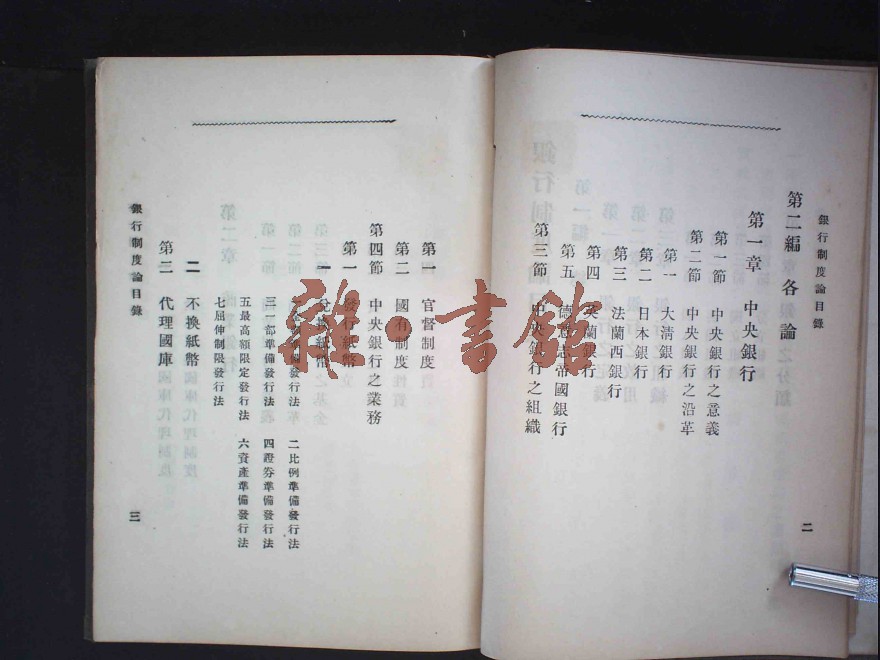 銀行制度論目錄
第二編 各論
第一章 中央銀行
第一節 中央銀行之意義
第二節 中央銀行之沿革
第一 大清銀行
第二 日本銀行
第三 法蘭西銀行
第四 英蘭銀行
第五 德意志帝國銀行
第三節 中央銀行之組織
二
第一 官督制度
第二 國有制度
第四節 中央銀行之業務
第一 發行紙幣
一 兌換紙幣
準備發行法 二比例準備發行法
三一部準備發行法 四證券準備發行法
五最高額限定發行法 六資產準備發行法
七屈伸制限發行法
二 不換紙幣
第二 代理國庫
銀行制度論目錄
三
雜·書館